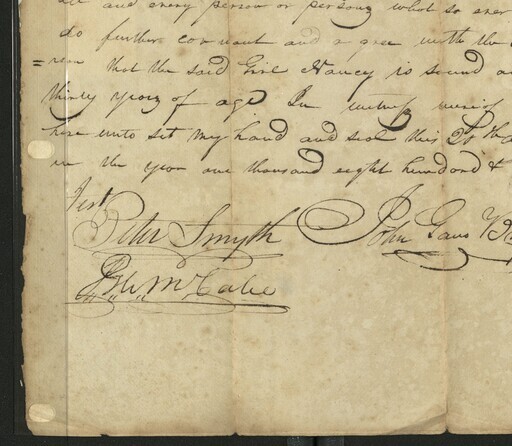 and every person or persons what so ever
do further covnant and agree with the
= ren that the said Girl Nancy is sound
thirty years of age In witness whereof
here unto set my hand and seal this 20th
in the year one thousand eight hundred &
Test
Peter Smyth John Gavo
McCabe